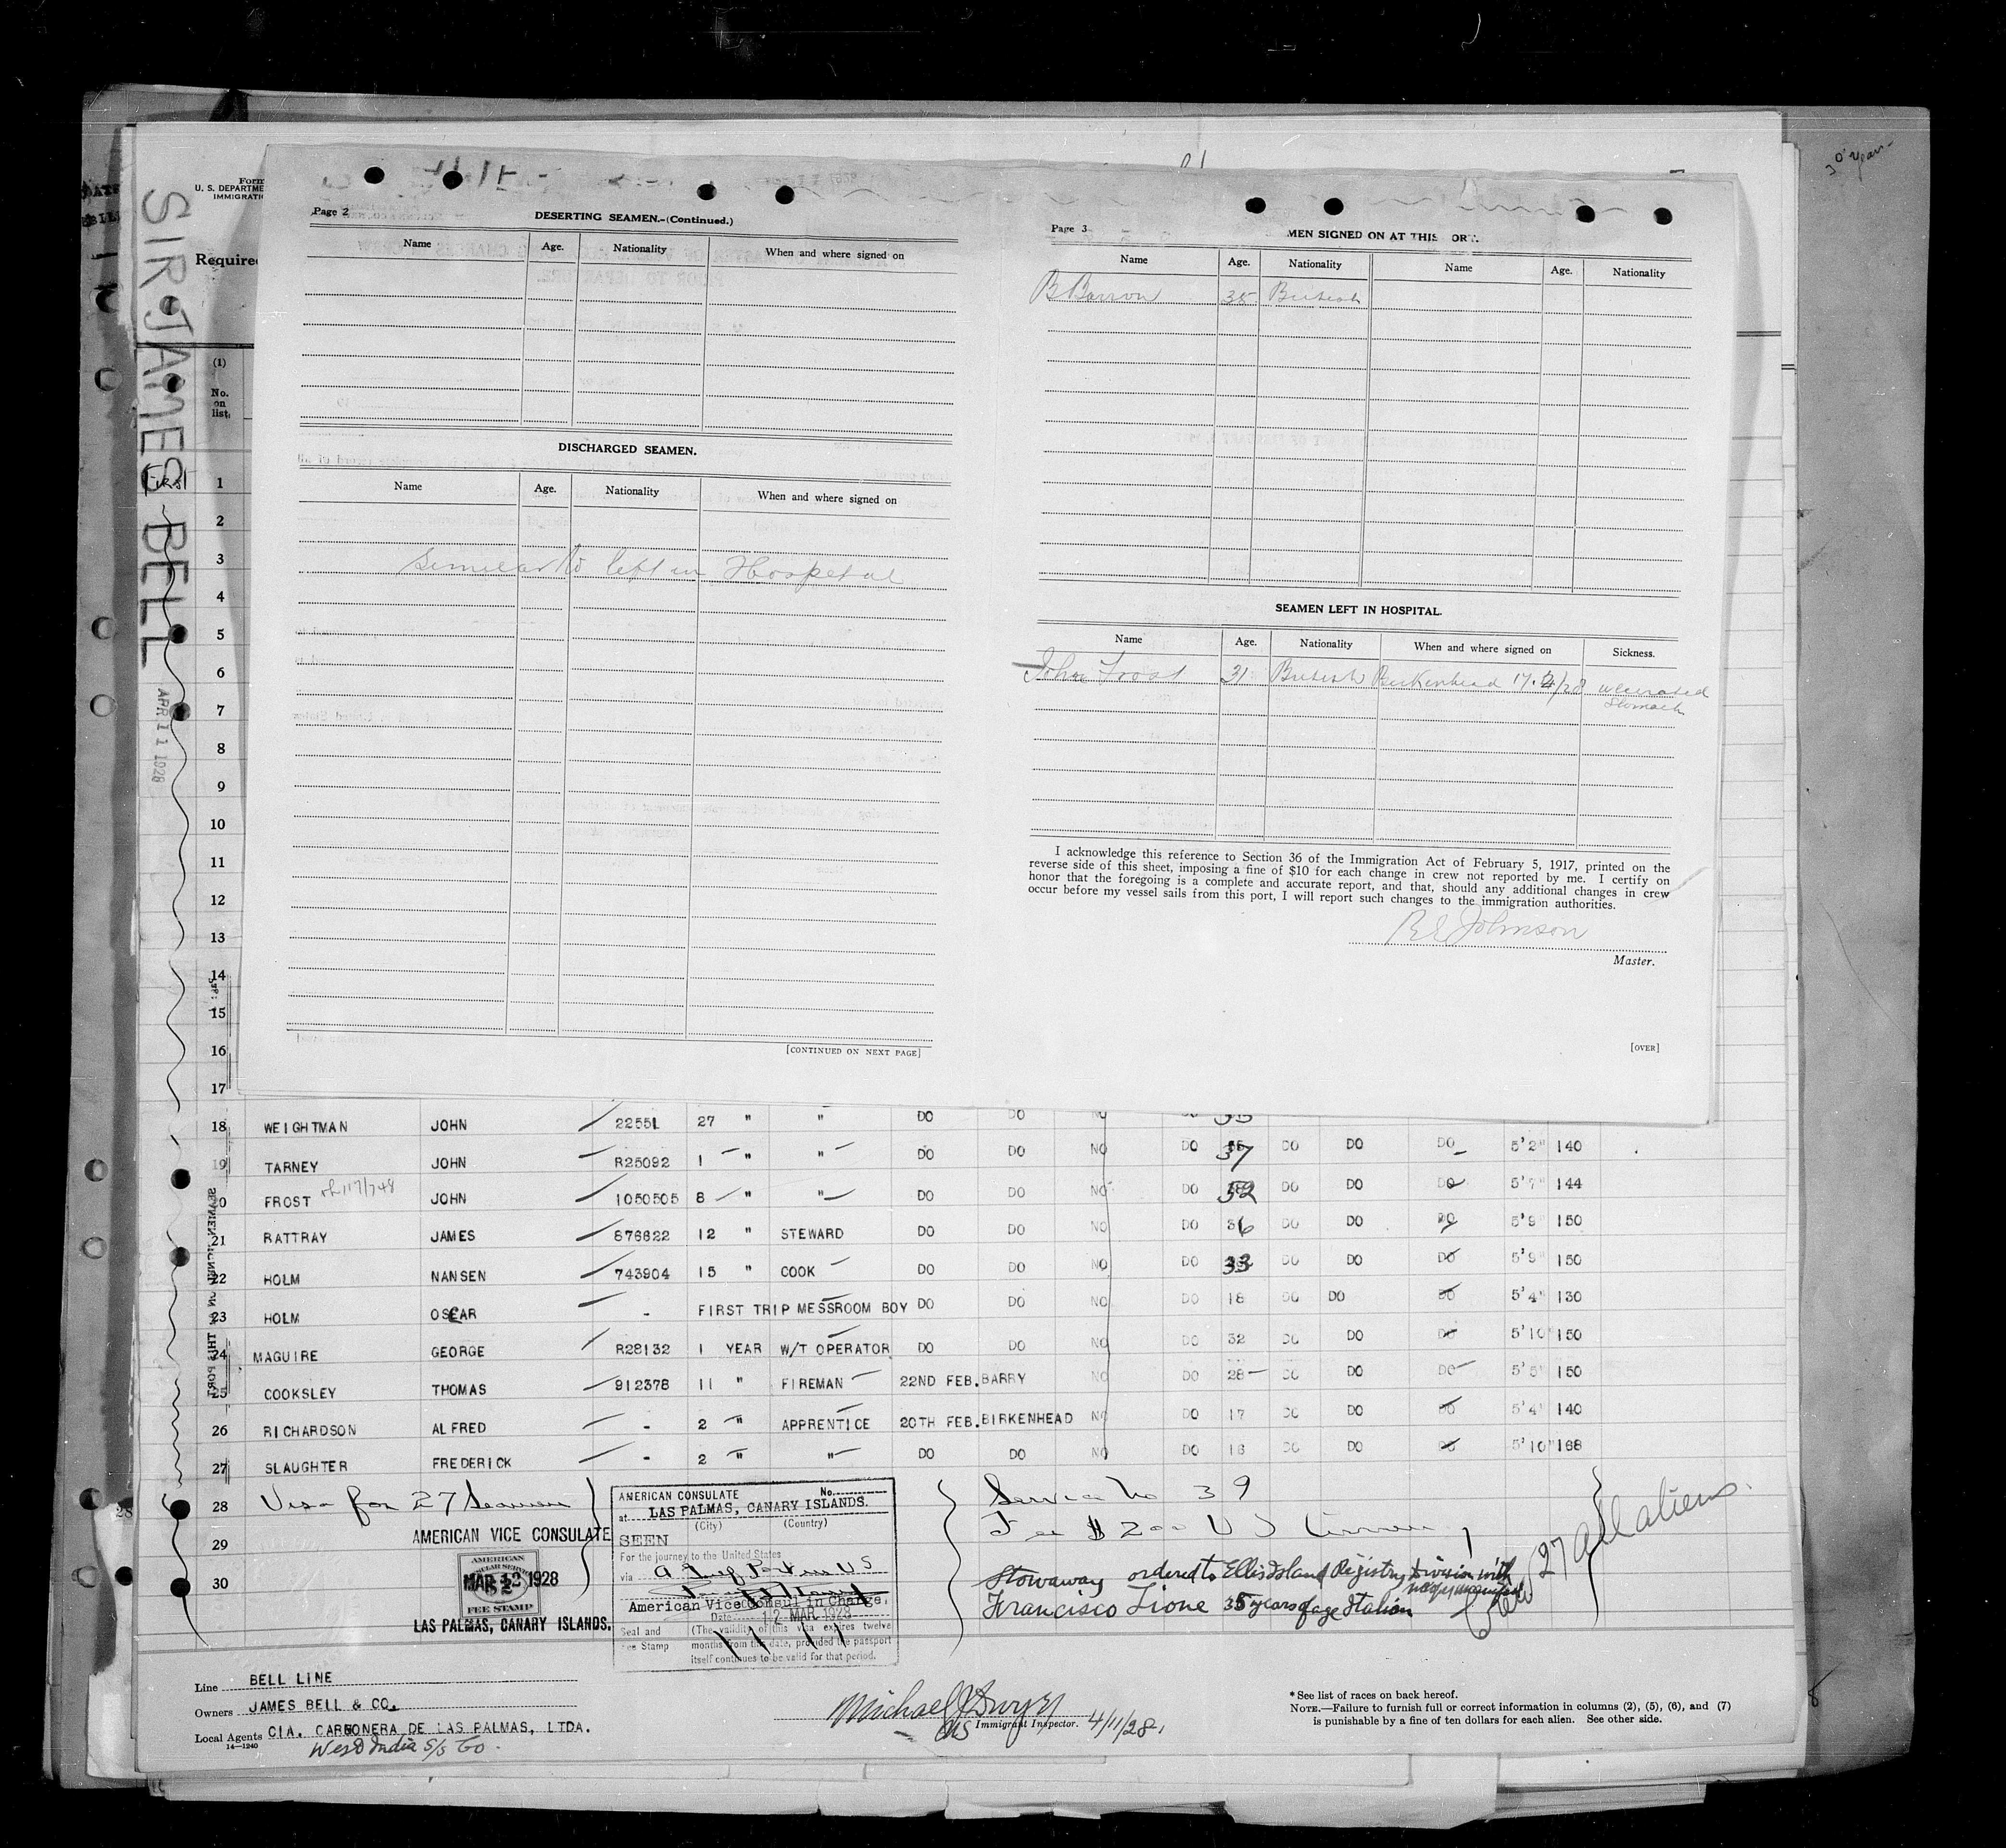 30 Year
SIR JAMES BELL
APR 11 1928
Form
U. S. DEPARTME
IMMIGRATI
Require
(1)
No.
on
list.
First
1
2
3
4
5
6
7
8
9
10
11
12
13
14
15
16
17
Page 2
DESERTING SEAMEN.—(Continued.)
Name Age. Nationality When and where signed on
DISCHARGED SEAMEN.
Name Age. Nationality When and where signed on
left in Hospital
[CONTINUED ON NEXT PAGE]
Page 3
MEN SIGNED ON AT THIS ORT.
Name Age. Nationality Name Age. Nationality
B Barron 35 British
SEAMEN LEFT IN HOSPITAL.
Name Age. Nationality When and where signed on Sickness.
John Frost 31 British Birkenhead 17.2/28 ulcerated
stomach
I acknowledge this reference to Section 36 of the Immigration Act of February 5, 1917, printed on the
reverse side of this sheet, imposing a fine of $10 for each change in crew not reported by me. I certify on
honor that the foregoing is a complete and accurate report, and that, should any additional changes in crew
occur before my vessel sails from this port, I will report such changes to the immigration authorities.
Johnson
Master.
[OVER]
18 WEIGHTMAN JOHN 22551 27 " " DO DO NO
19 TARNEY JOHN R25092 1 " " DO DO NO DO 37 DO DO DO 5'2" 140
20 FROST JOHN 1050505 8 " " DO DO NO DO 32 DO DO DO 5'7" 144
21 RATTRAY JAMES 876822 12 " STEWARD DO DO NO DO 36 DO DO DO 5'9" 150
22 HOLM NANSEN 743904 15 " COOK DO DO NO DO 33 DO DO DO 5'9" 150
23 HOLM OSCAR - FIRST TRIP MESSROOM BOY DO DO NO DO 18 DO DO DO 5'4" 130
24 MAGUIRE GEORGE R28132 1 YEAR W/T OPERATOR DO DO NO DO 32 DO DO DO 5'10" 150
25 COOKSLEY THOMAS 912378 11 " FIREMAN 22ND FEB. BARRY NO DO 28 DO DO DO 5'5" 150
26 RICHARDSON ALFRED - 2 " APPRENTICE 20TH FEB. BIRKENHEAD NO DO 17 DO DO DO 5'4" 140
27 SLAUGHTER FREDERICK - 2 " " DO DO NO DO 18 DO DO DO 5'10" 168
28 Visa for 27 Seamen
29
30
AMERICAN VICE CONSULATE
AMERICAN
CONSULAR SERVICE
MAR 12 1928
FEE STAMP
LAS PALMAS, CANARY ISLANDS.
AMERICAN CONSULATE No.
at LAS PALMAS, CANARY ISLANDS.
(City) (Country)
SEEN
For the journey to the United States
via A Gulf Port in US
American Vice Consul in Charge.
Date 12 MAR. 1928
Seal and
Fee Stamp
(The validity of this visa expires twelve
months from this date, provided the passport
itself continues to be valid for that period.
Service No 39
Fee $2.00 U S
Stowaway ordered to Ellis Island Registry Division with
Francisco Lione 35 years of age Italian
Crew 27 all aliens.
Line BELL LINE
Owners JAMES BELL & CO.
Local Agents CIA. CARBONERA DE LAS PALMAS, LTDA.
14—1240
West India S/S Co.
Michael J Dwyer
US Immigrant Inspector. 4/11/28.
* See list of races on back hereof.
NOTE.—Failure to furnish full or correct information in columns (2), (5), (6), and (7)
is punishable by a fine of ten dollars for each alien. See other side.